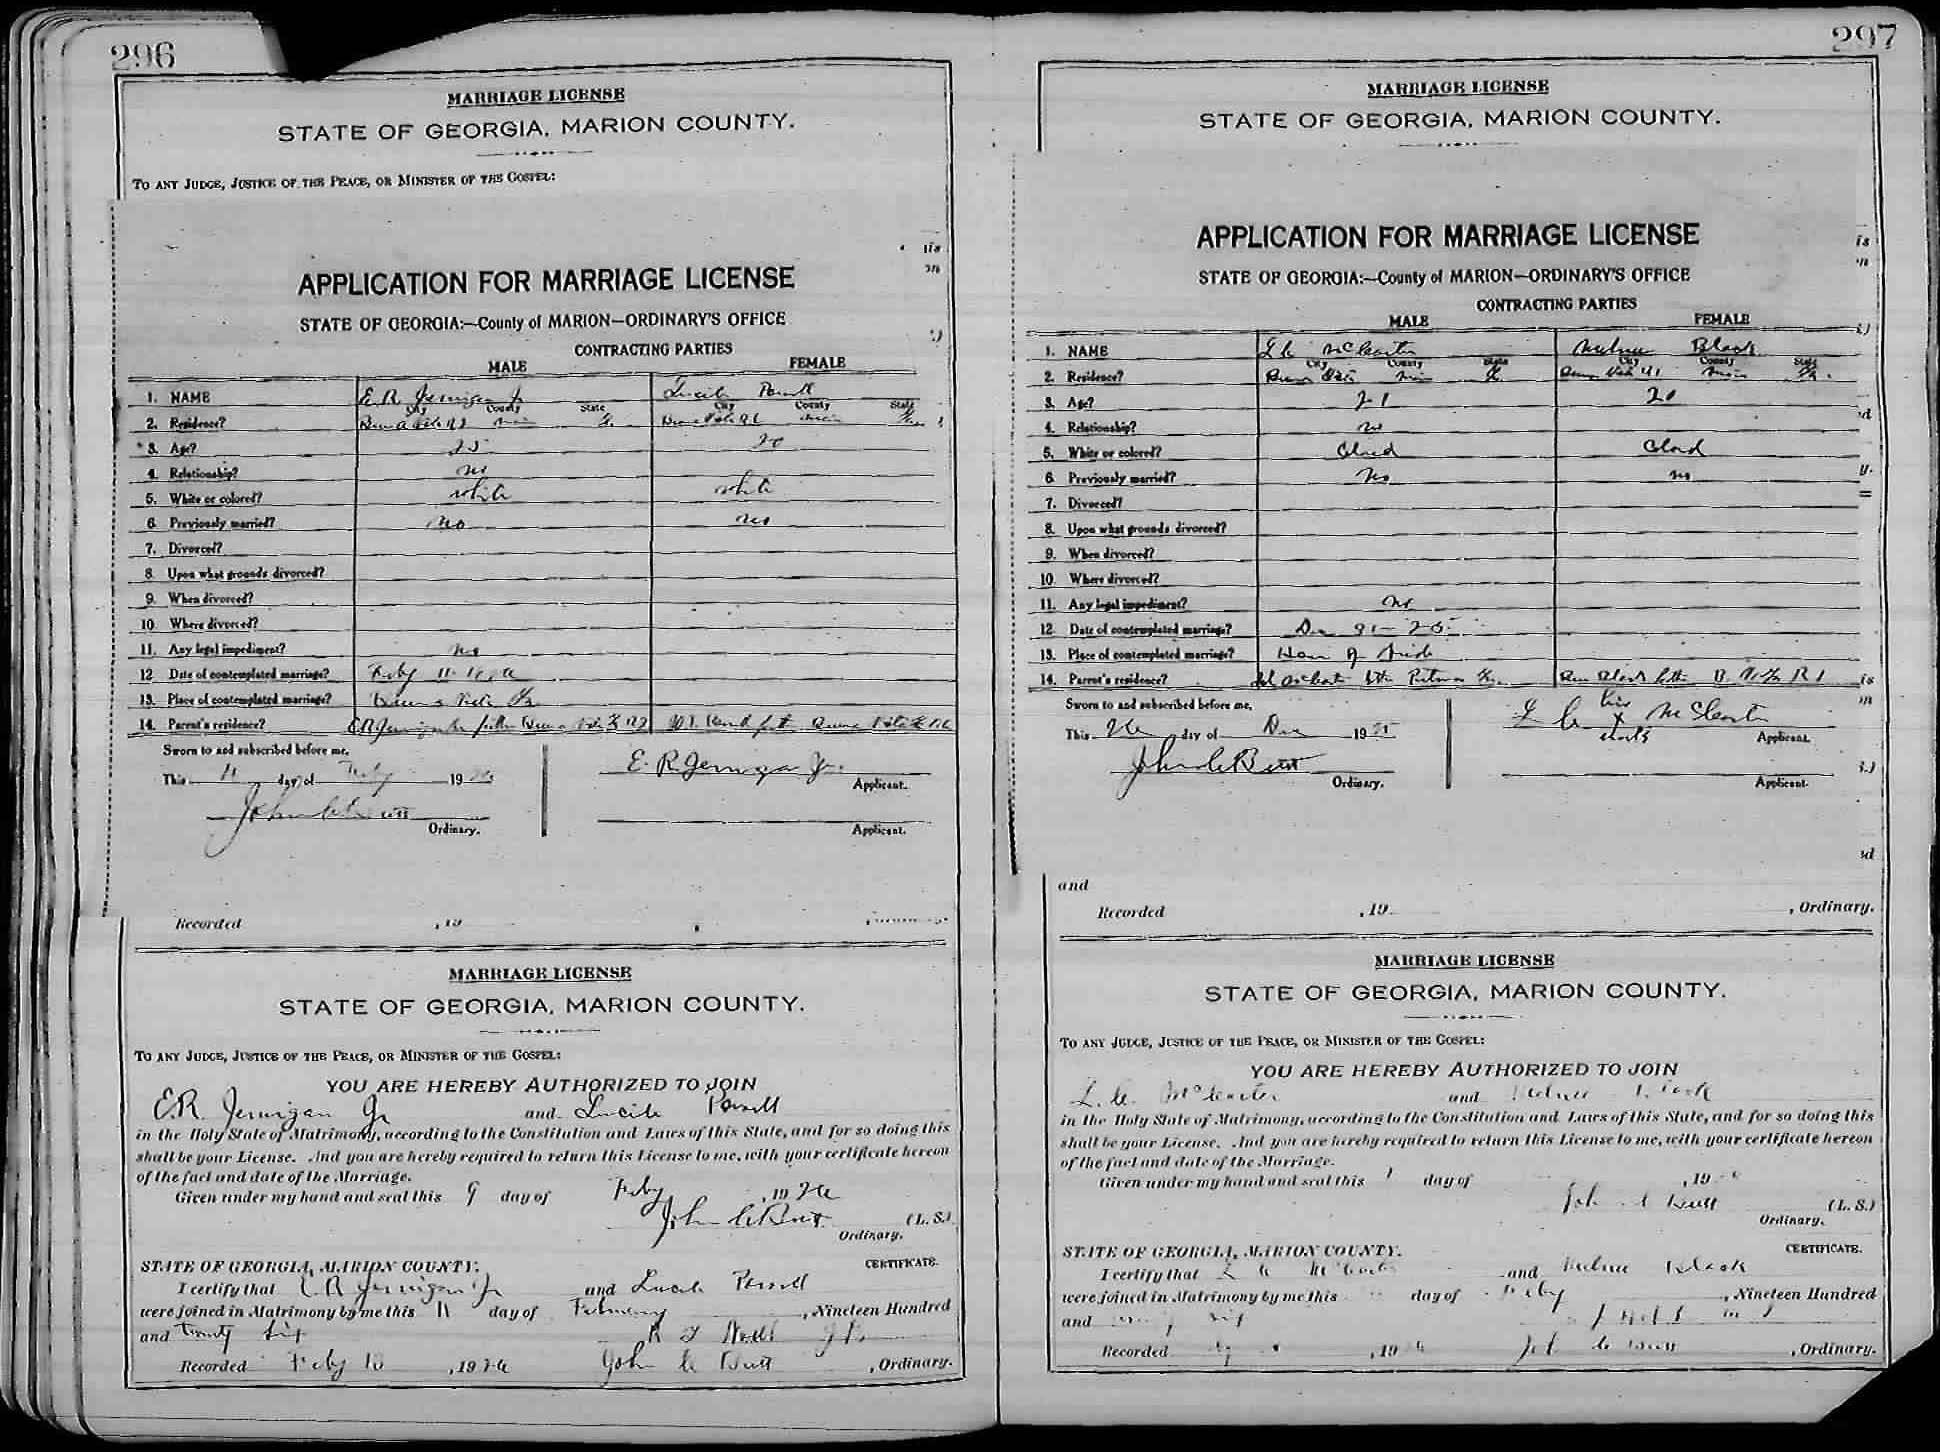 296
MARRIAGE LICENSE
STATE OF GEORGIA, MARION COUNTY.
TO ANY JUDGE, JUSTICE OF THE PEACE, OR MINISTER OF THE GOSPEL:
APPLICATION FOR MARRIAGE LICENSE
STATE OF GEORGIA:—County of MARION—ORDINARY'S OFFICE
CONTRACTING PARTIES
MALE FEMALE
1. NAME E. R. Jernigan Jr Lucile Powell
City County State City County State
2. Residence?
3. Age? 25 20
4. Relationship? no
5. White or colored? white white
6. Previously married? no no
7. Divorced?
8. Upon what grounds divorced?
9. When divorced?
10. Where divorced?
11. Any legal impediment? no
12. Date of contemplated marriage? Feby 11 1926
13. Place of contemplated marriage? Buena Vista Ga
14. Parent's residence? E R Jernigan
Sworn to and subscribed before me,
This 11 day of Feby 1926
E. R Jernigan Jr.
Applicant.
John C Butt
Ordinary.
Applicant.
Recorded , 19
MARRIAGE LICENSE
STATE OF GEORGIA, MARION COUNTY.
TO ANY JUDGE, JUSTICE OF THE PEACE, OR MINISTER OF THE GOSPEL:
YOU ARE HEREBY AUTHORIZED TO JOIN
E.R. Jernigan Jr and Lucile Powell
in the Holy State of Matrimony, according to the Constitution and Laws of this State, and for so doing this
shall be your License. And you are hereby required to return this License to me, with your certificate hereon
of the fact and date of the Marriage.
Given under my hand and seal this 9 day of Feby , 1926
John C Butt (L. S.)
Ordinary.
STATE OF GEORGIA, MARION COUNTY. CERTIFICATE.
I certify that E R Jernigan Jr and Lucile Powell
were joined in Matrimony by me this 11 day of February , Nineteen Hundred
and twenty six
Recorded Feby 1926 John C Butt , Ordinary.
297
MARRIAGE LICENSE
STATE OF GEORGIA, MARION COUNTY.
APPLICATION FOR MARRIAGE LICENSE
STATE OF GEORGIA:—County of MARION—ORDINARY'S OFFICE
CONTRACTING PARTIES
MALE FEMALE
1. NAME L C McCarter Black
City County State City County State
2. Residence?
3. Age? 21 20
4. Relationship? no
5. White or colored? Colord Colord
6. Previously married? No no
7. Divorced?
8. Upon what grounds divorced?
9. When divorced?
10. Where divorced?
11. Any legal impediment? no
12. Date of contemplated marriage? Dec
13. Place of contemplated marriage? Home of Bride
14. Parent's residence?
Sworn to and subscribed before me,
This 26 day of Dec 1925
L C his x mark McCarter
Applicant.
John C Butt
Ordinary.
Applicant.
and
Recorded , 19 , Ordinary.
MARRIAGE LICENSE
STATE OF GEORGIA, MARION COUNTY.
TO ANY JUDGE, JUSTICE OF THE PEACE, OR MINISTER OF THE GOSPEL:
YOU ARE HEREBY AUTHORIZED TO JOIN
L. C. McCarter and Black
in the Holy State of Matrimony, according to the Constitution and Laws of this State, and for so doing this
shall be your License. And you are hereby required to return this License to me, with your certificate hereon
of the fact and date of the Marriage.
Given under my hand and seal this day of , 19
John C Butt (L. S.)
Ordinary.
STATE OF GEORGIA, MARION COUNTY. CERTIFICATE.
I certify that L C McCarter and Black
were joined in Matrimony by me this day of Feby , Nineteen Hundred
and six
Recorded , 19 John C Butt , Ordinary.